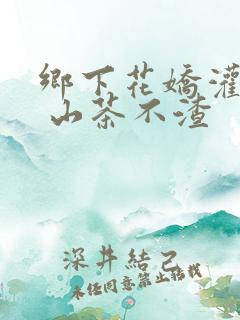 鄉下花嬌灌
山茶不渣
深井結己
未任同意禁止转载